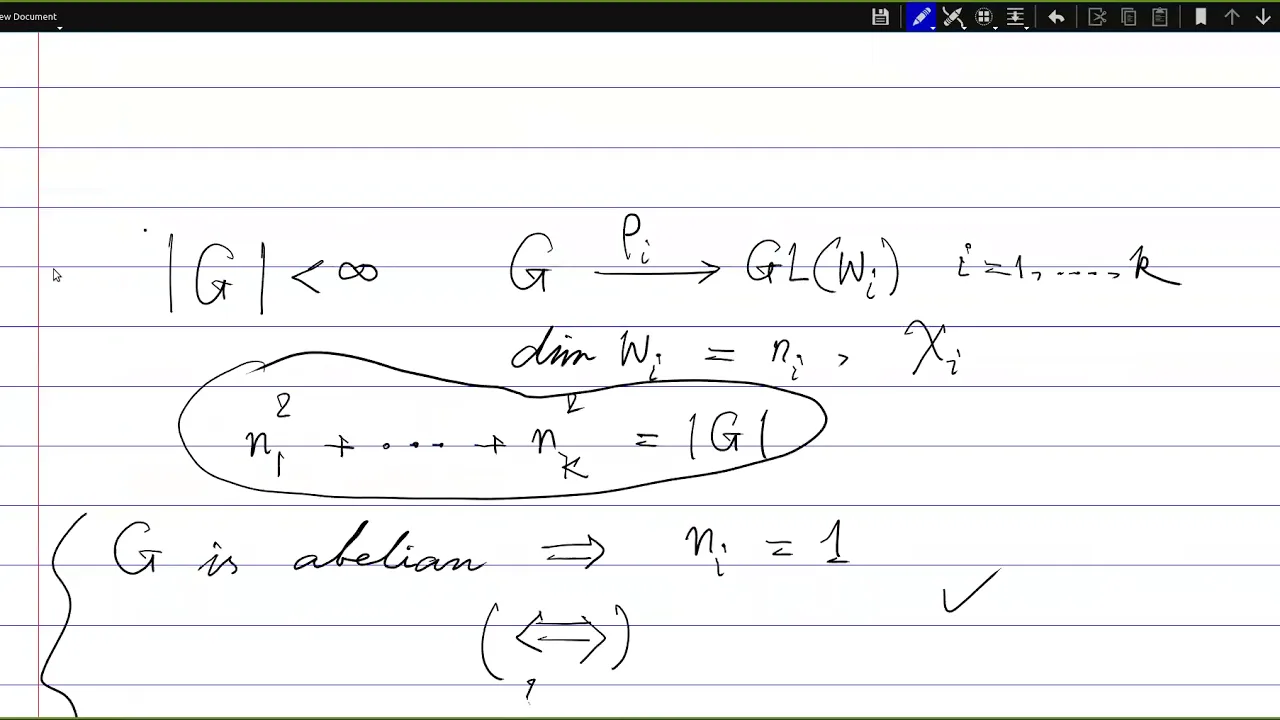 ew Document
|G| < ∞ G ρᵢ → GL(Wᵢ) i = 1, ...., k
dim Wᵢ = nᵢ, χᵢ
n₁² + ··· + nₖ² = |G|
G is abelian ⇒ nᵢ = 1 ✓
(⇔)